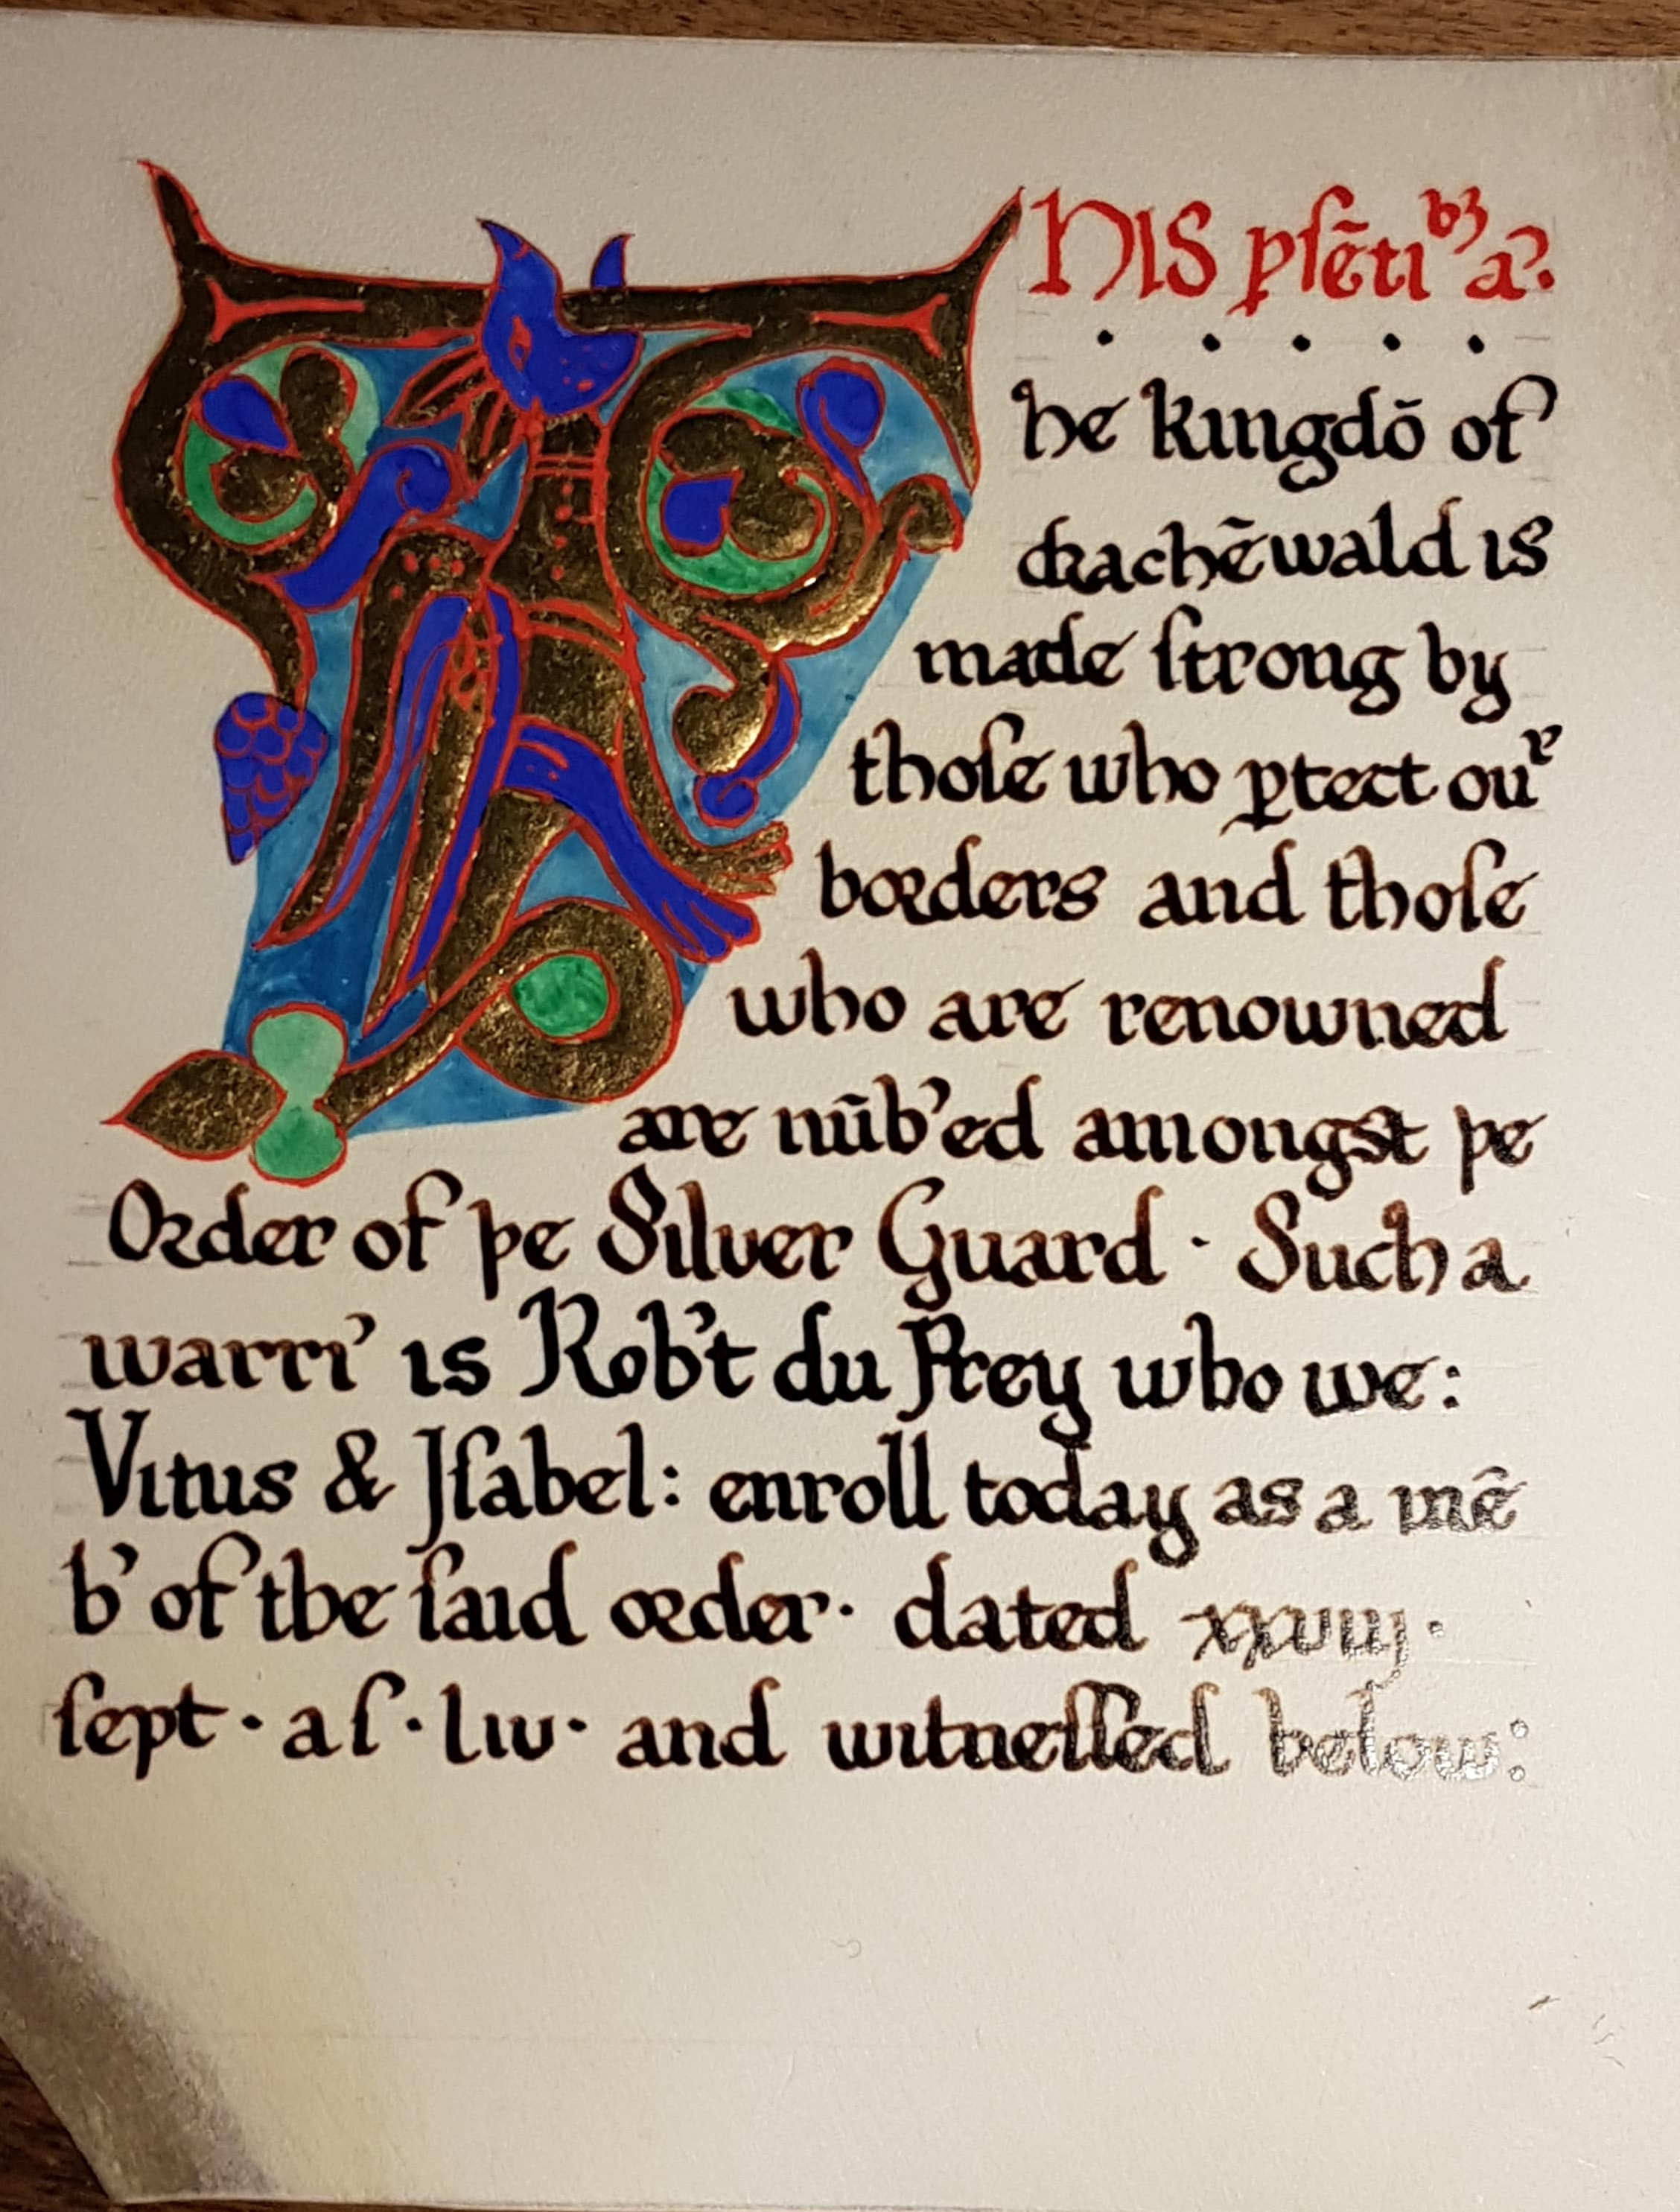 his pſēti^bꝫ a?.
T he kingdō of
drachēwald is
made ſtrong by
thoſe who ꝓtect ou^r
boꝛders and thoſe
who are renowned
are nūb'ed amongst þe
Oꝛder of þe Silver Guard · Such a
warri' is Rob't du Frey who we:
Vitus & Iſabel: enroll today as a mē
b' of the ſaid oꝛder · dated xxviij ·
ſept · a ſ · liv · and witneſſed below: